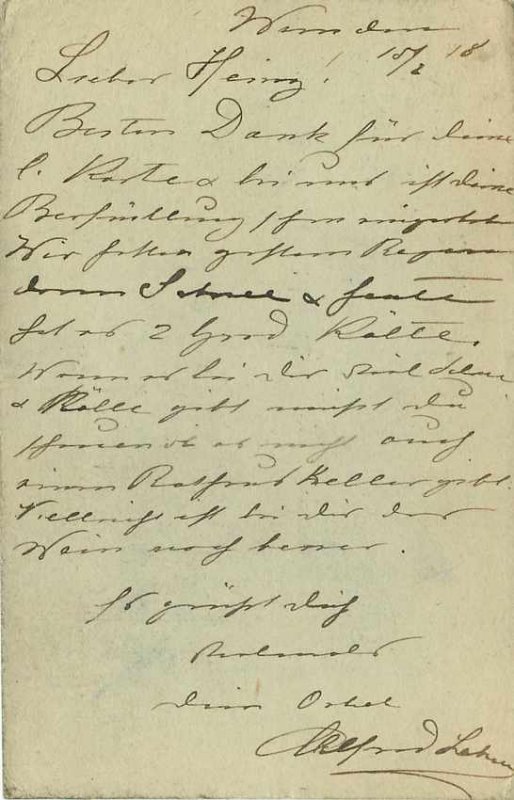 15/2 18
Lieber Heinz!
Besten Dank für deine
l. Karte & bei uns ist deine
Wir hatten gestern Regen
dann Schnee & heute
hat es 2 Grad Kälte.
Wenn es bei dir viel Schnee
& Kälte gibt mußt du
schauen ob es nicht auch
einen Rathaus Keller gibt.
Vielleicht ist bei dir der
Wein noch besser.
Es grüßt dich
dein Onkel
Alfred